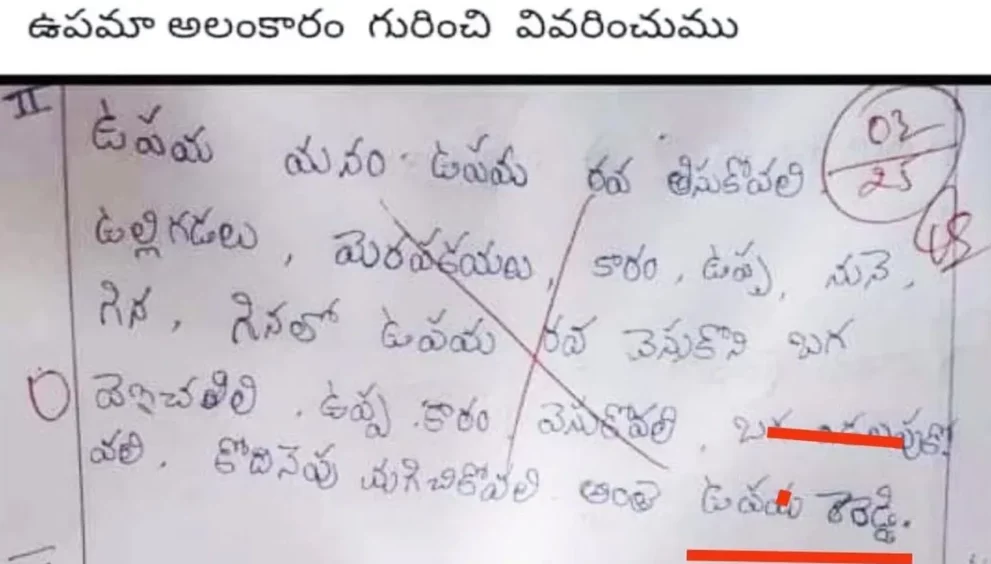 ఉపమా అలంకారం గురించి వివరించుము
II
ఉపమ మనం ఉపమ రవ తిసుకొవలి
02/25
ఉల్లిగడలు, మెరపకయలు, కారం, ఉప్ప, నునె,
గిన, గినలో ఉపమ రవ వెసుకొని బగ
0 ఉప్ప కారం వెసుకొవలి.
వలి. కోదినెపు మగిచికోవలి అంతె ఉపమ రెరెడ్డి.